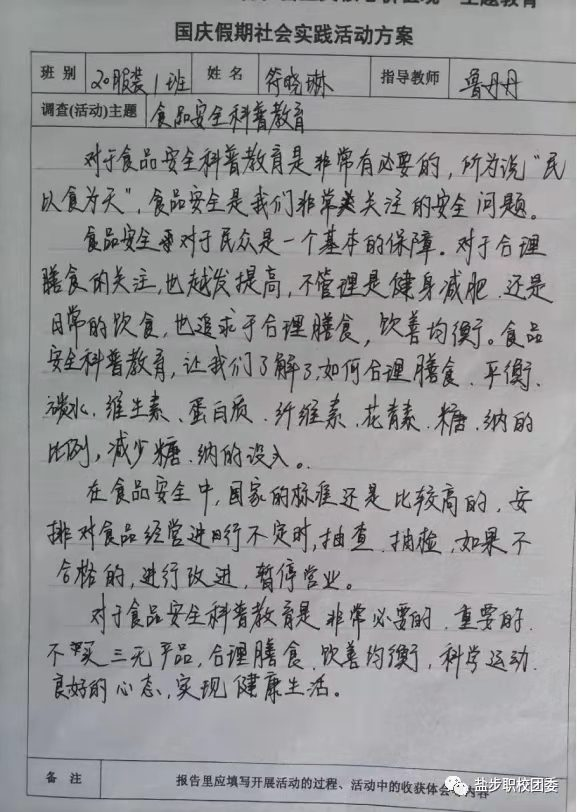 国庆假期社会实践活动方案
班 别 20服装1班 姓 名 符晓琳 指导教师 鲁丹丹
调查(活动)主题 食品安全科普教育
对于食品安全科普教育是非常有必要的，所为说“民
以食为天”，食品安全是我们非常关注的安全问题。
食品安全对于民众是一个基本的保障。对于合理
膳食的关注，也越发提高，不管理是健身减肥、还是
日常的饮食，也追求于合理膳食，饮善均衡。食品
安全科普教育，让我们了解了，如何合理膳食、平衡、
碳水、维生素、蛋白质、纤维素、花青素、糖、纳的
比例，减少糖、纳的设入。
在食品安全中，国家的标准还是比较高的，安
排对食品经营进行不定时，抽查、抽检，如果不
合格的，进行改进，暂停营业。
对于食品安全科普教育是非常必要的、重要的、
不买三无产品，合理膳食、饮善均衡，科学运动、
良好的心态，实现健康生活。
备 注 报告里应填写开展活动的过程、活动中的收获体会等内容
盐步职校团委